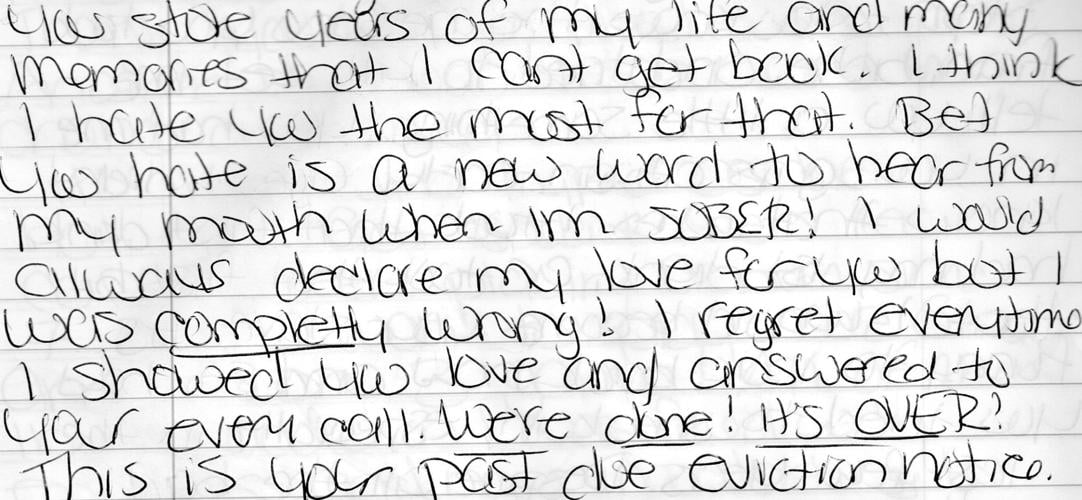 You stole years of my life and many
memories that I cant get back. I think
I hate you the most for that. Bet
you hate is a new word to hear from
my mouth when im SOBER! I would
always declare my love for you but I
was completly wrong. I regret everytime
I showed you love and answered to
your every call. We're done! it's OVER!
This is your past due eviction notice.